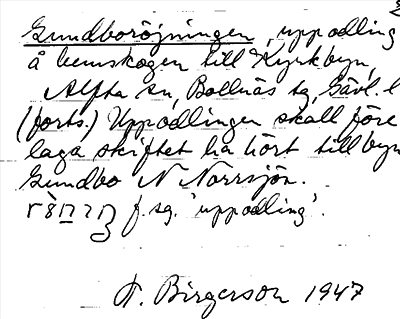 Gundboröjningen, uppodling
å hemskogen till Kyrkbyn,
Alfta sn, Bollnäs tg, Gävl. l
(forts.) Uppodlingen skall före
laga skiftet ha hört till byn
Gundbo N Norrsjön.
f. sg. 'uppodling'.
F. Birgerson 1947